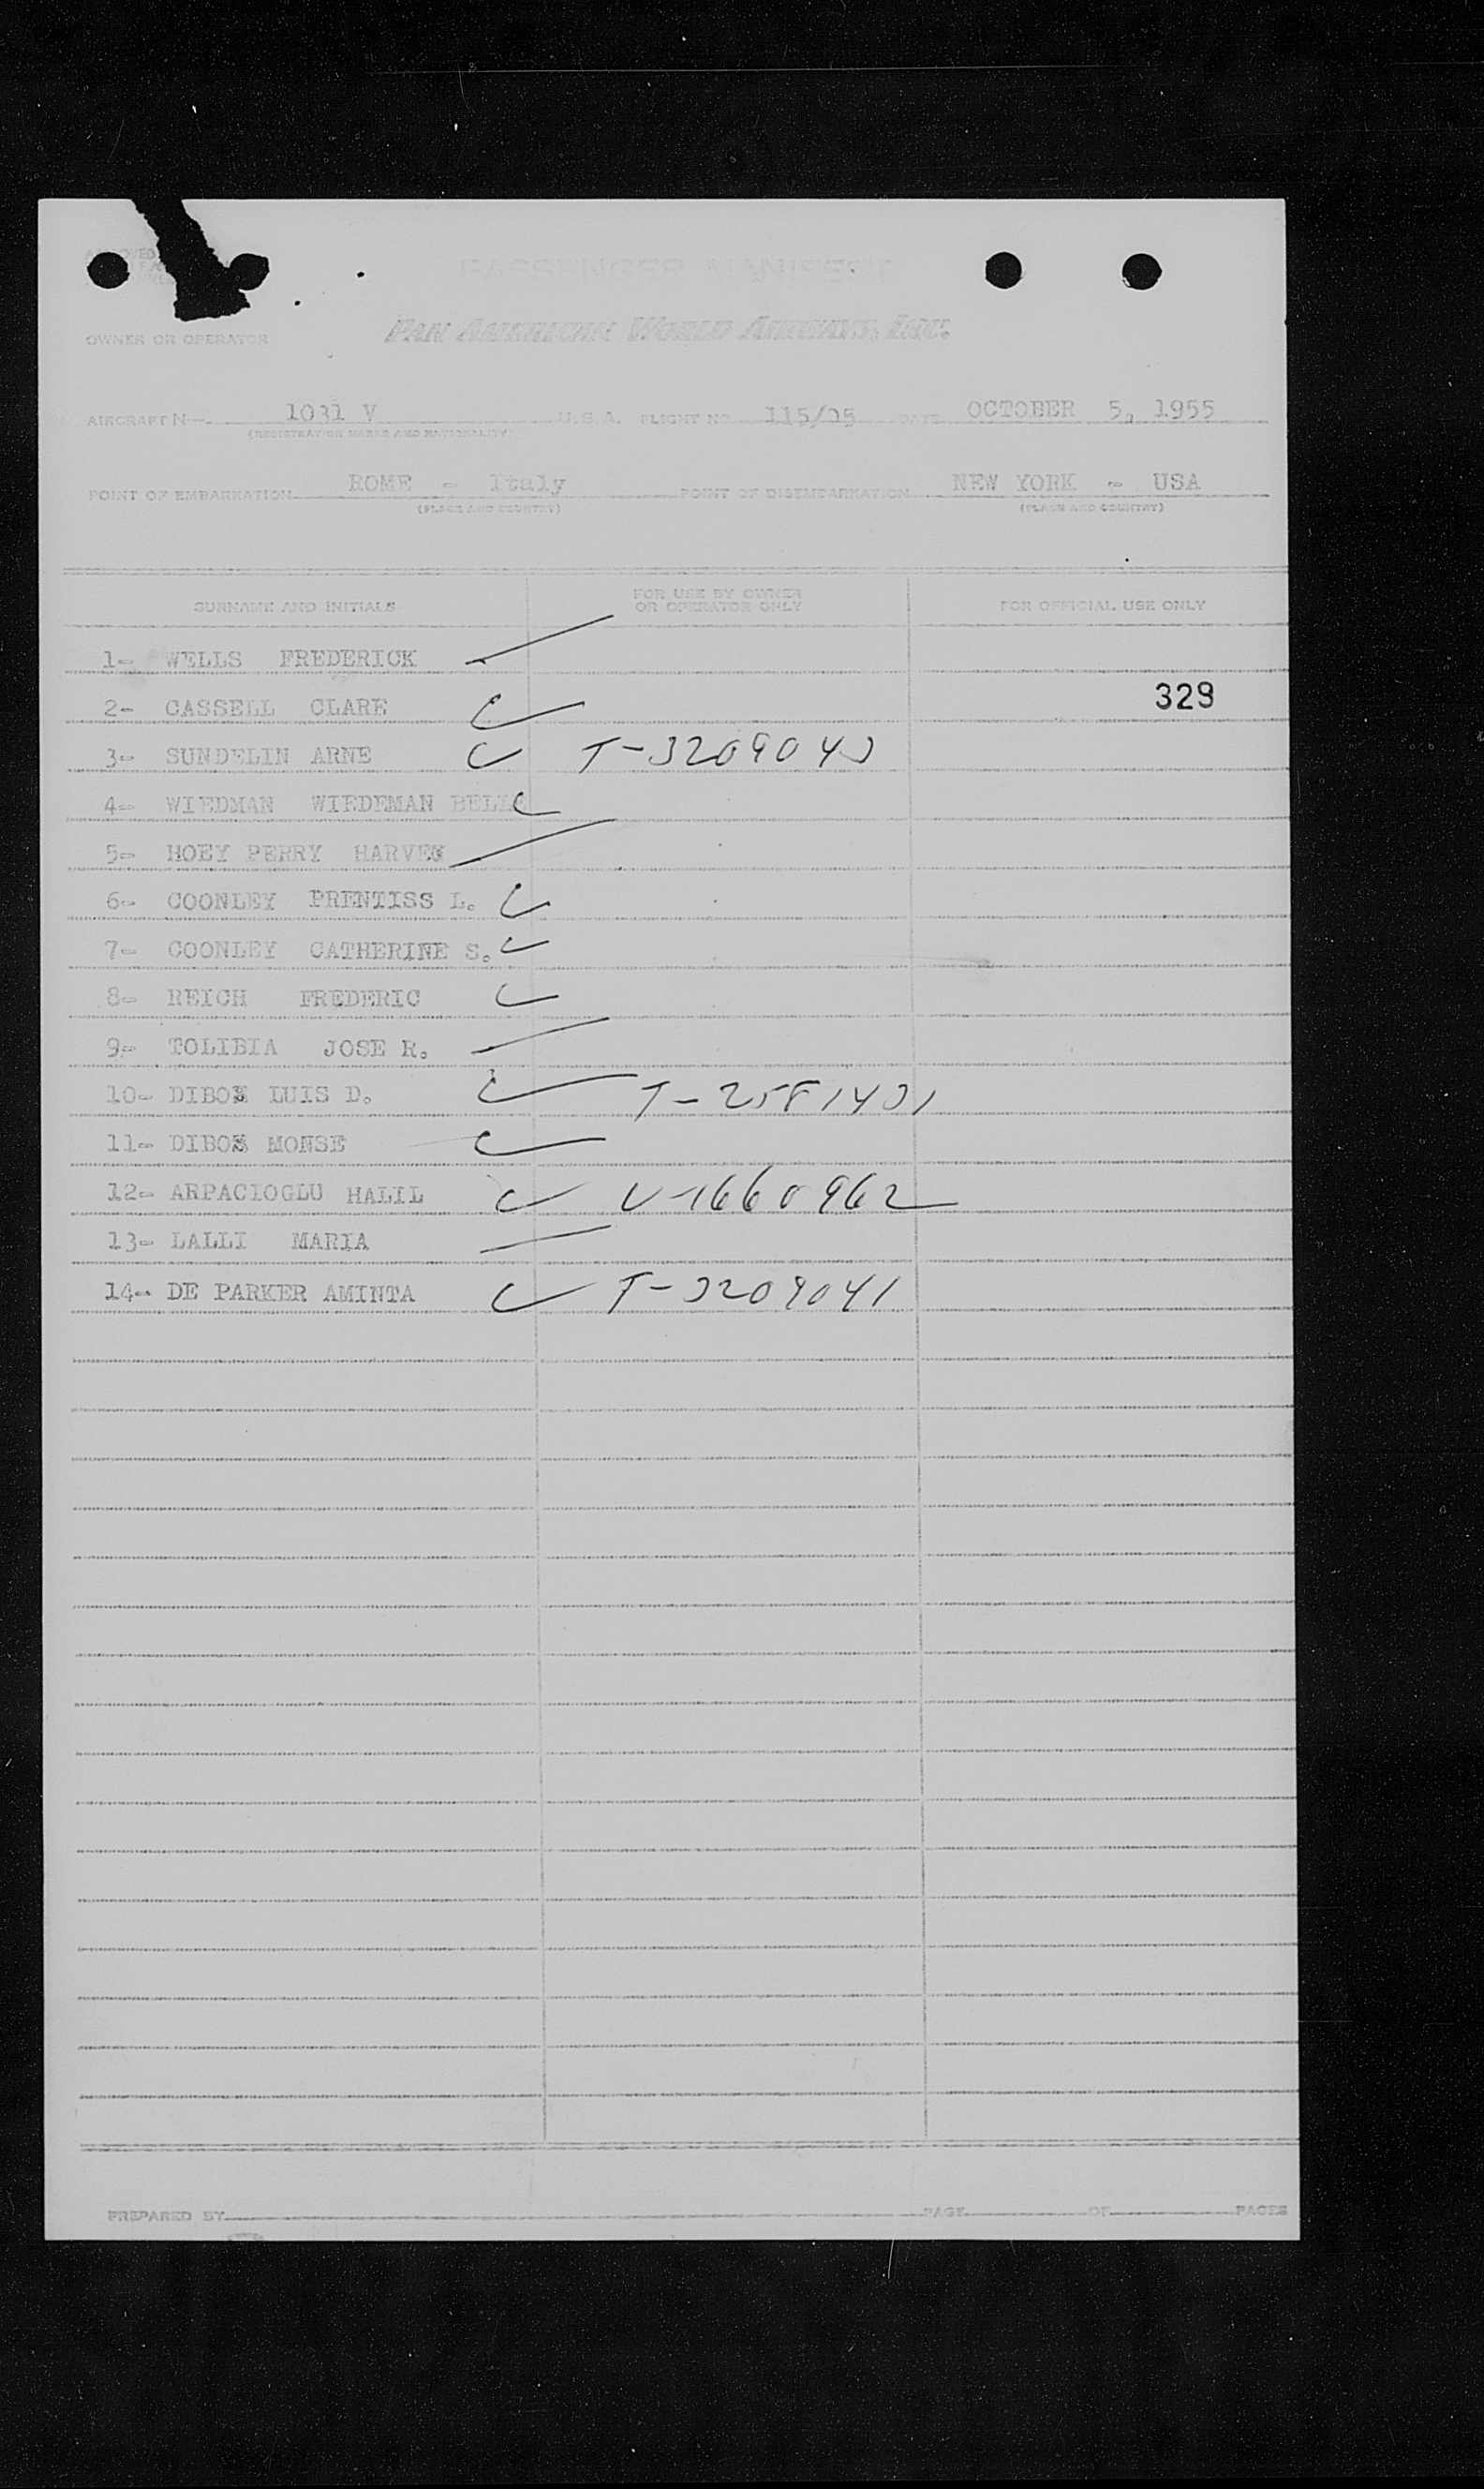 PASSENGER MANIFEST
OWNER OR OPERATOR PAN AMERICAN WORLD AIRWAYS, INC.
AIRCRAFT N- 1031 V U.S.A. FLIGHT NO. 115/05 DATE OCTOBER 5, 1955
(REGISTRATION MARKS AND NATIONALITY)
POINT OF EMBARKATION ROME - Italy POINT OF DISEMBARKATION NEW YORK - USA
(PLACE AND COUNTRY) (PLACE AND COUNTRY)
SURNAME AND INITIALS FOR USE BY OWNER OR OPERATOR ONLY FOR OFFICIAL USE ONLY
1- WELLS FREDERICK
2- CASSELL CLARE 329
3- SUNDELIN ARNE T-3209043
4- WIEDMAN WIEDEMAN
5- HOEY PERRY
6- COONLEY PRENTISS L.
7- COONLEY CATHERINE S.
8- REICH FREDERIC
9- TOLIBIA JOSE R.
10- LUIS D. T-2581431
11- MONSE
12- ARPACIOGLU HALIL V-1660962
13- LALLI MARIA
14- DE PARKER AMINTA T-3209041
PREPARED BY PAGE OF PAGES